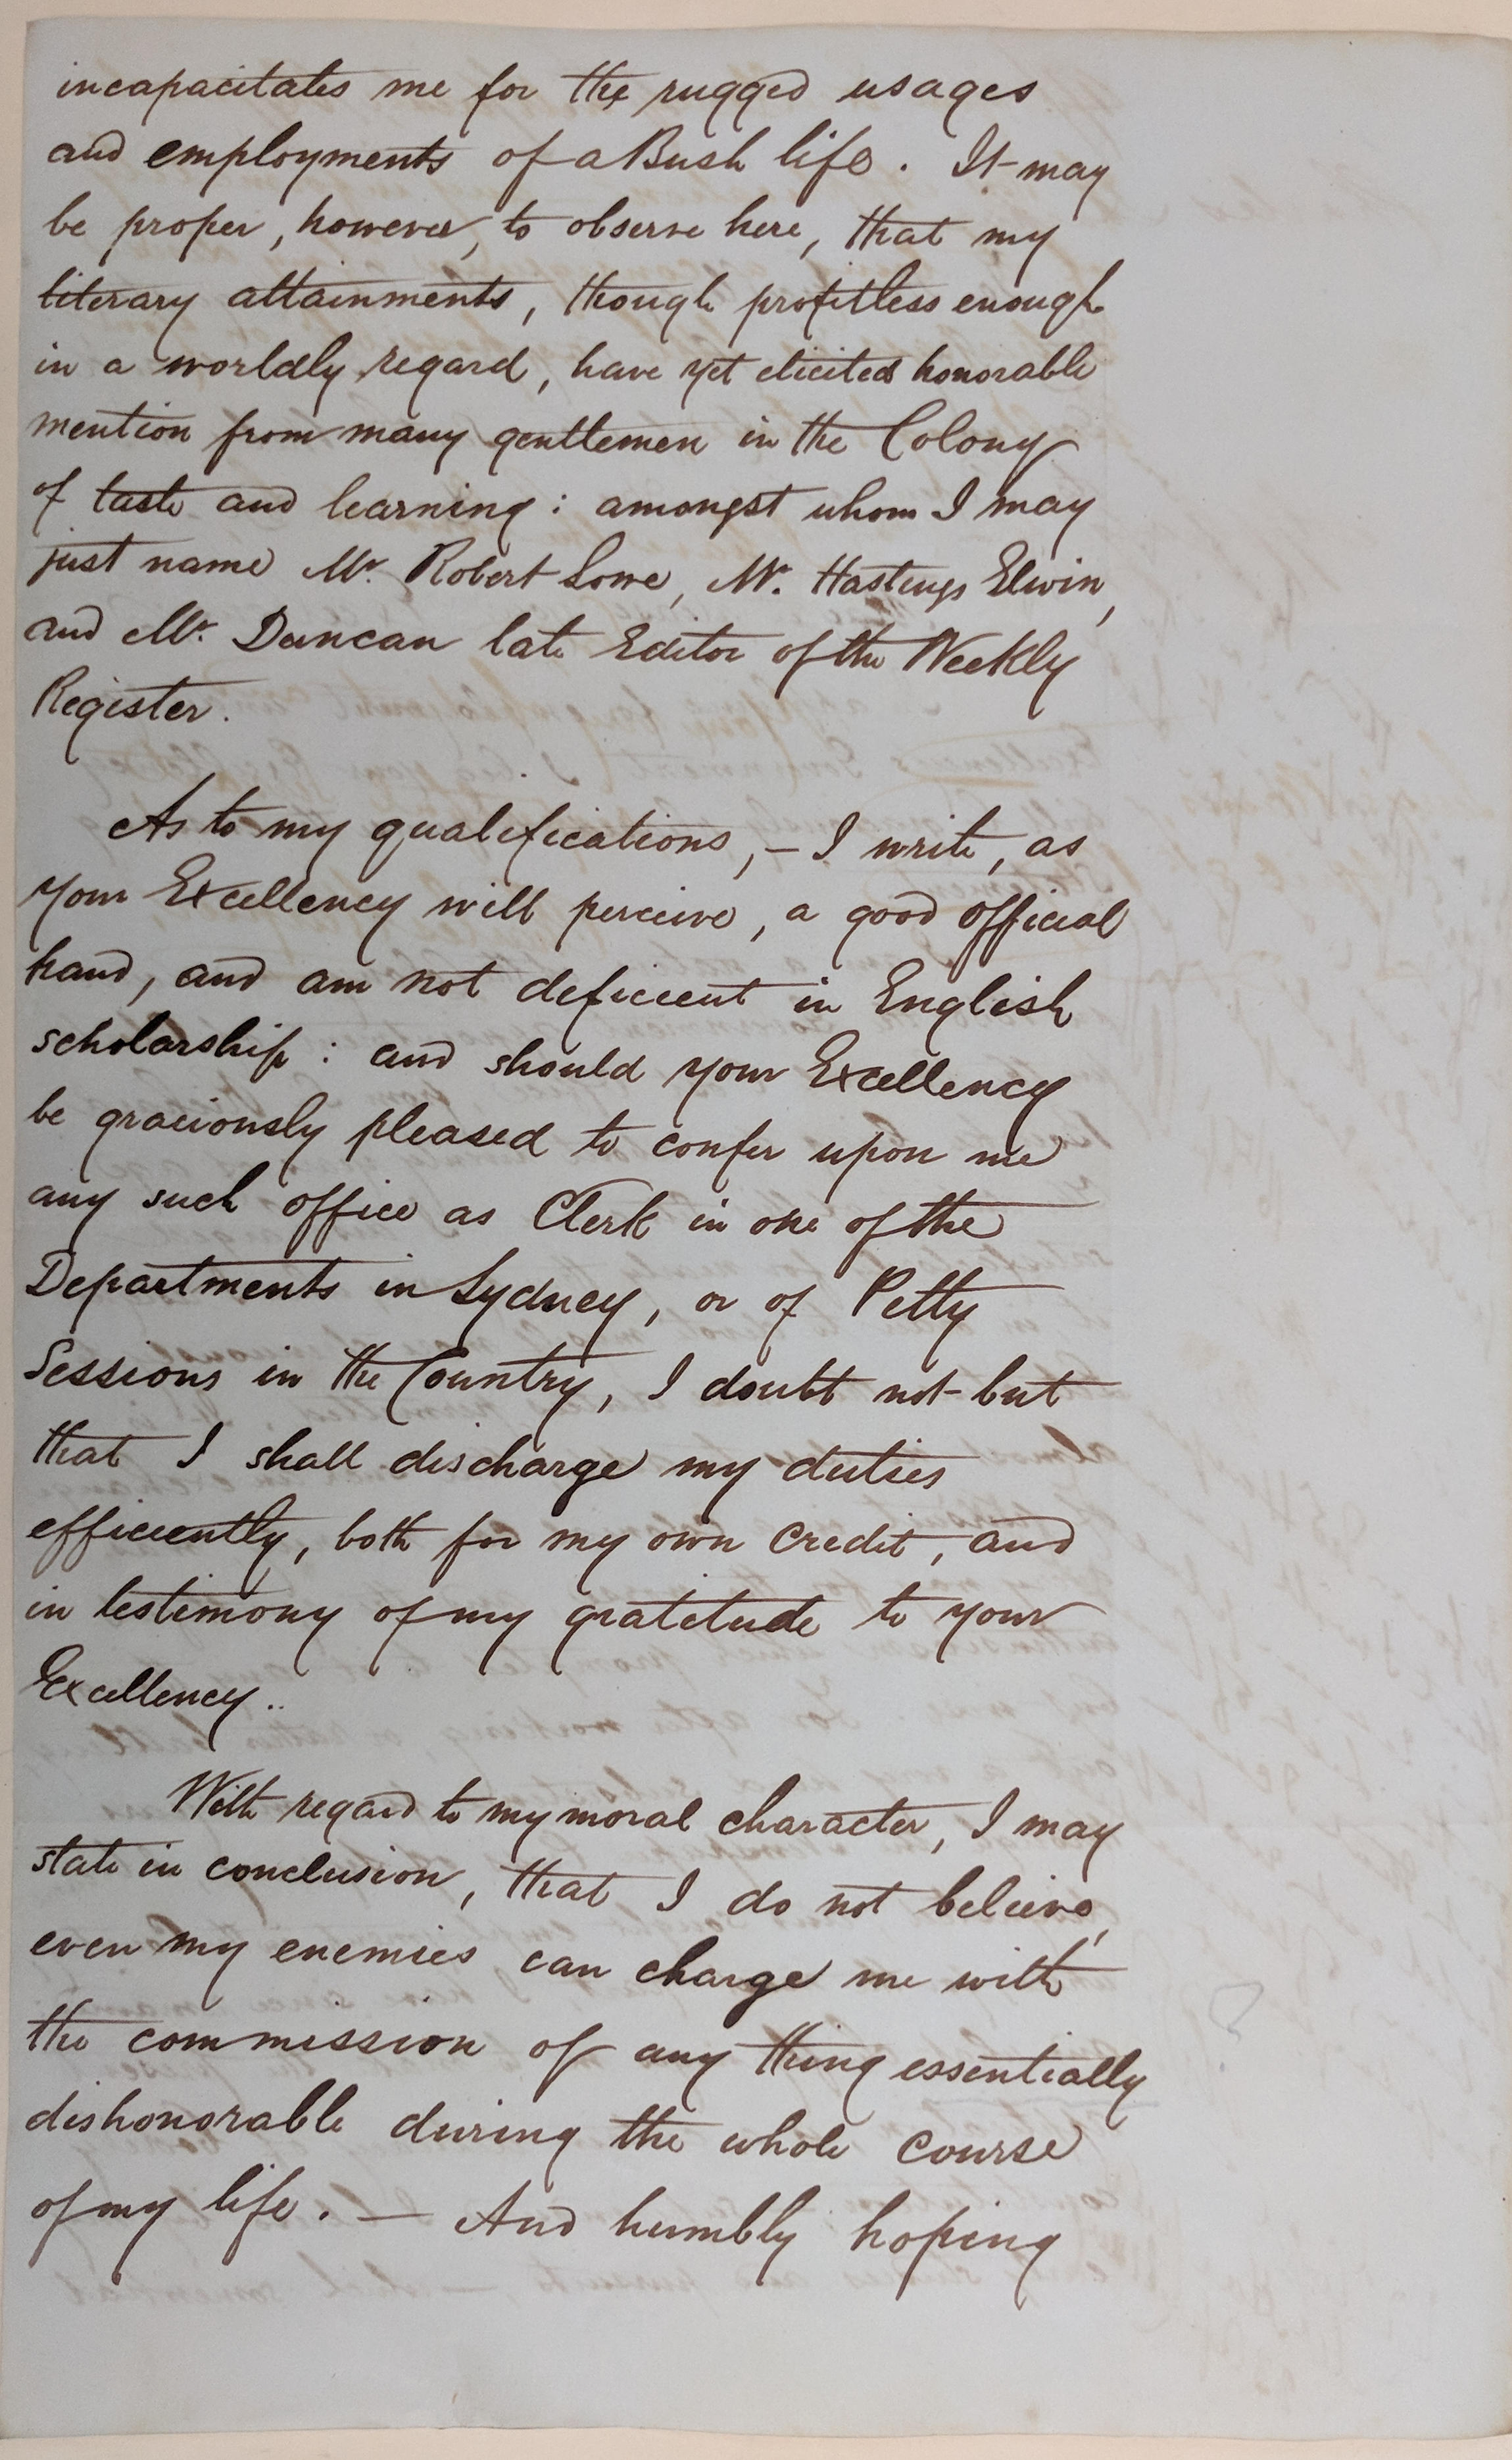 incapacitates me for the rugged usages
and employments of a Bush life. It may
be proper, however, to observe here, that my
literary attainments, though profitless enough
in a worldly regard, have yet elicited honorable
mention from many gentlemen in the Colony
of taste and learning: amongst whom I may
just name Mr. Robert Lowe, Mr. Hastings Elwin,
and Mr. Duncan late Editor of the Weekly
Register.
As to my qualifications, – I write, as
your Excellency will perceive, a good official
hand, and am not deficient in English
scholarship: and should your Excellency
be graciously pleased to confer upon me
any such office as Clerk in one of the
Departments in Sydney, or of Petty
Sessions in the Country, I doubt not but
that I shall discharge my duties
efficiently, both for my own credit, and
in testimony of my gratitude to your
Excellency..
With regard to my moral character, I may
state in conclusion, that I do not believe,
even my enemies can charge me with
the commission of any thing essentially
dishonorable during the whole course
of my life. — And humbly hoping